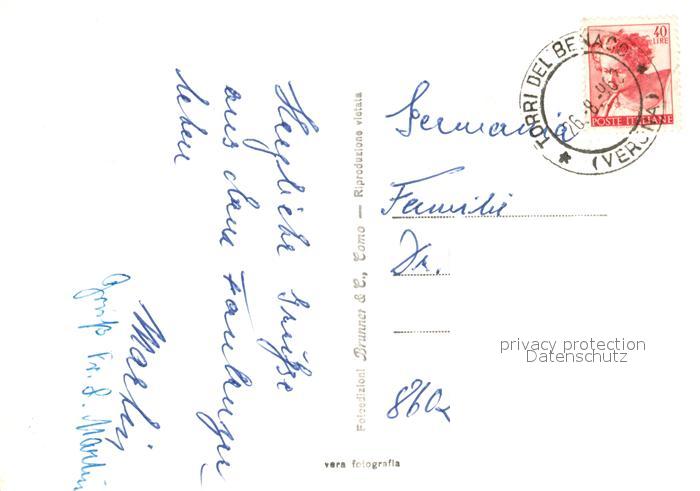 Herzliche Grüße
aus dem Faulenzer-
leben
Martin
Gruß
Fotoedizioni Brunner & C., Como — Riproduzione vietata
vera fotografia
40
LIRE
POSTE ITALIANE
TORRI DEL BENACO
(VERONA)
Germania
Familie
Dr.
privacy protection
Datenschutz